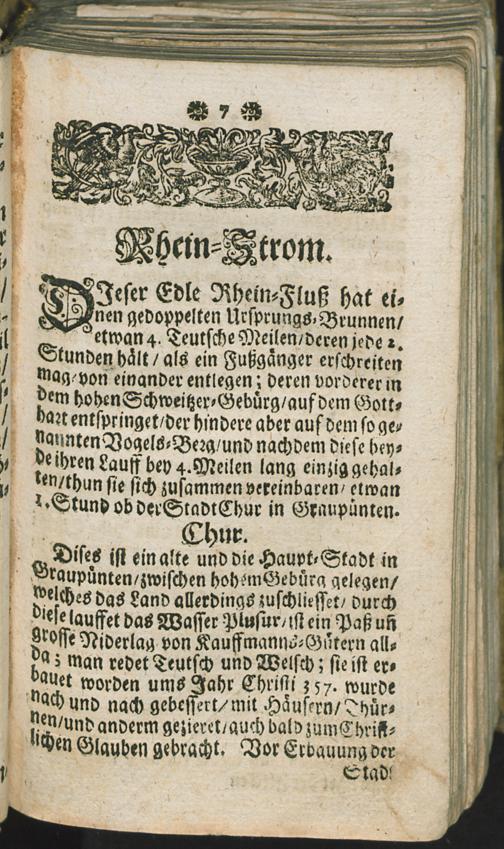 7
Rhein-Strom.
DJeser Edle Rhein-Fluß hat ei-
nen gedoppelten Ursprungs-Brunnen/
etwan 4. Teutsche Meilen/deren jede 2.
Stunden hält/ als ein Fußgänger erschreiten
mag/von einander entlegen; deren vorderer in
dem hohen Schweitzer-Gebürg/auf dem Gott-
hart entspringet/der hindere aber auf dem so ge-
nannten Vogels-Berg/und nachdem diese bey-
de ihren Lauff bey 4. Meilen lang einzig gehal-
ten/thun sie sich zusammen vereinbaren/ etwan
1. Stund ob der Stadt Chur in Graupünten.
Chur.
Dises ist ein alte und die Haupt-Stadt in
Graupünten/zwischen hohem Gebürg gelegen/
welches das Land allerdings zuschliesset/ durch
diese lauffet das Wasser Plusur/ist ein Paß uñ
grosse Niderlag von Kauffmanns-Gütern all-
da; man redet Teutsch und Welsch; sie ist er-
bauet worden ums Jahr Christi 357. wurde
nach und nach gebessert/mit Häusern/Thür-
nen/und anderm gezieret/auch bald zum Christ-
lichen Glauben gebracht. Vor Erbauung der
Stadt